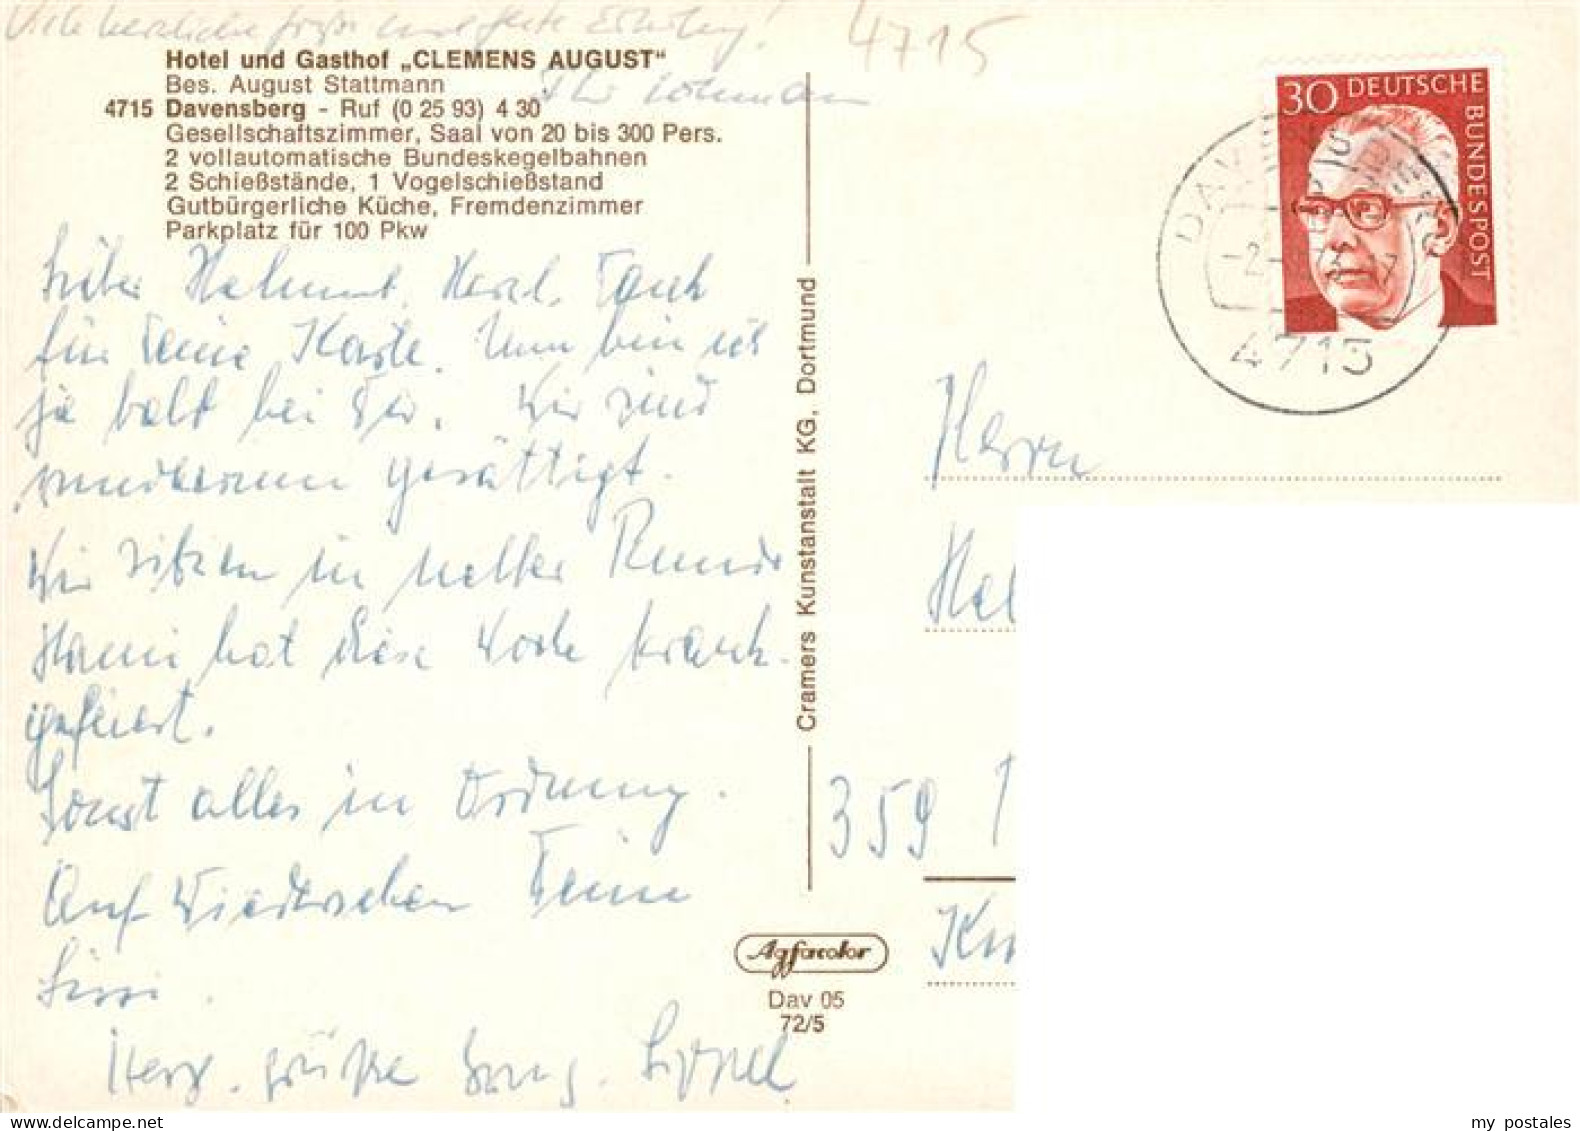 Viele herzliche Grüße und gute Erholung!
4715
Hotel und Gasthof „CLEMENS AUGUST“
Bes. August Stattmann
Ihr
4715 Davensberg - Ruf (0 25 93) 4 30
Gesellschaftszimmer, Saal von 20 bis 300 Pers.
2 vollautomatische Bundeskegelbahnen
2 Schießstände, 1 Vogelschießstand
Gutbürgerliche Küche, Fremdenzimmer
Parkplatz für 100 Pkw
Lieber Helmut, Herzl. Dank
für Deine Karte. Nun bin ich
ja bald bei Dir. Wir sind
gesättigt.
Wir sitzen in netter Runde
Hanni hat diese Woche krank-
gefeiert.
Sonst alles in Ordnung.
Auf Wiedersehen Deine
Sissi.
Herz. Grüße
Cramers Kunstanstalt KG, Dortmund
Agfacolor
Dav 05
72/5
30 DEUTSCHE BUNDESPOST
4715
Herrn
Hel
359